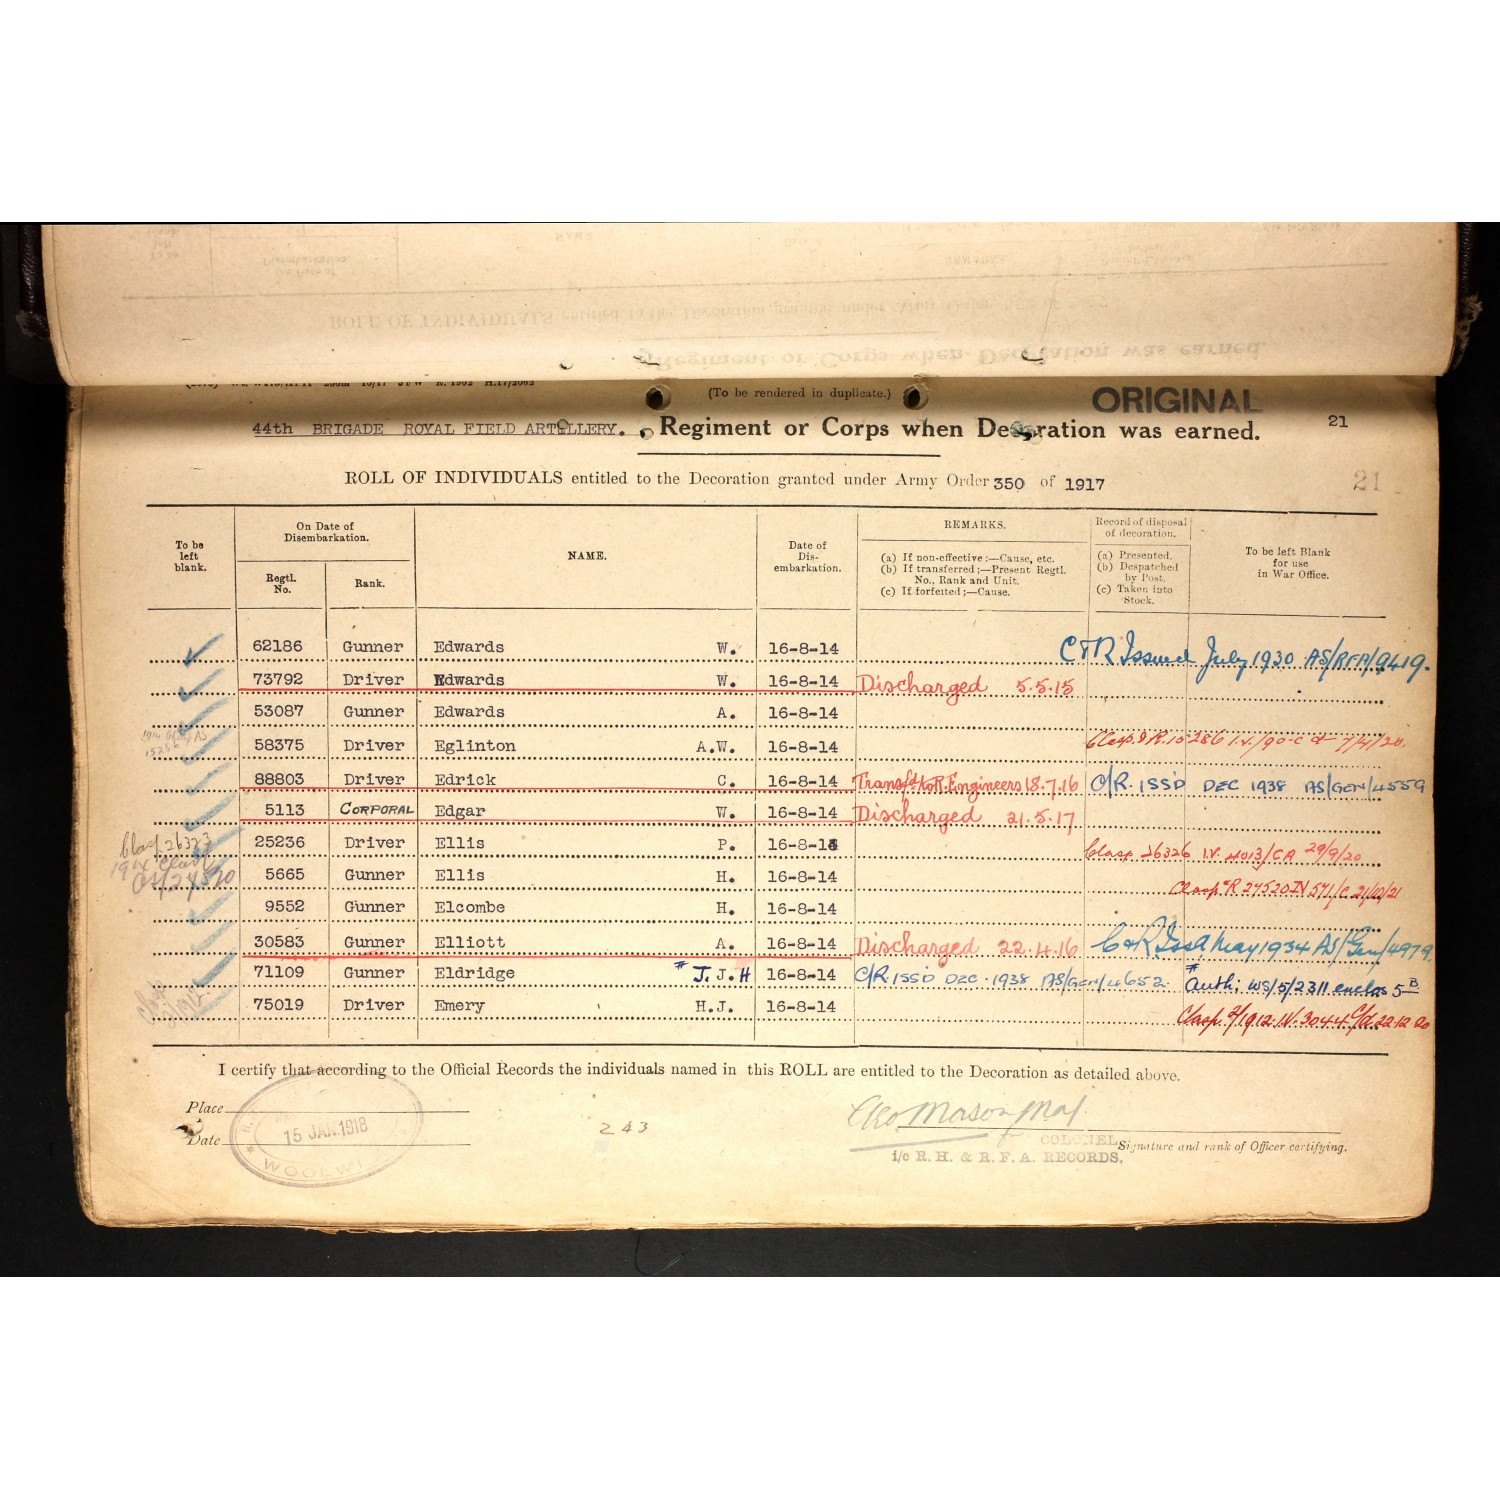 (To be rendered in duplicate.)
ORIGINAL
44th BRIGADE ROYAL FIELD ARTILLERY. Regiment or Corps when Decoration was earned. 21
ROLL OF INDIVIDUALS entitled to the Decoration granted under Army Order 350 of 1917 21
To be left blank. On Date of Disembarkation. Regtl. No. Rank. NAME. Date of Dis-embarkation. REMARKS.
(a) If non-effective:—Cause, etc.
(b) If transferred;—Present Regtl. No., Rank and Unit.
(c) If forfeited;—Cause.
Record of disposal of decoration.
(a) Presented.
(b) Despatched by Post.
(c) Taken into Stock.
To be left Blank for use in War Office.
62186 Gunner Edwards W. 16-8-14 C & R Issued July 1930 AS/RFA/9419.
73792 Driver Edwards W. 16-8-14 Discharged 5.5.15
53087 Gunner Edwards A. 16-8-14
58375 Driver Eglinton A.W. 16-8-14 Clasp & R. 10286 I.V./90-C d- 7/4/20.
88803 Driver Edrick C. 16-8-14 Transfd to R. Engineers 18.7.16 C/R. ISSD DEC 1938 AS/GEN/4559
5113 CORPORAL Edgar W. 16-8-14 Discharged 21.5.17
25236 Driver Ellis P. 16-8-14 Clasp 26326 I.V. 4013/CA 29/9/20
5665 Gunner Ellis H. 16-8-14 Clasp & R 27520 IV 571/C 21/10/21
9552 Gunner Elcombe H. 16-8-14
30583 Gunner Elliott A. 16-8-14 Discharged 22.4.16 C & R Issd May 1934 AS/Gen/4979.
71109 Gunner Eldridge # J.J.H 16-8-14 C/R. ISSD DEC. 1938 AS/GEN/4652. # Auth; WS/5/2311 enclos 5B
75019 Driver Emery H.J. 16-8-14 Clasp 2/1912. IV. 3044 C/d 22.12.20
I certify that according to the Official Records the individuals named in this ROLL are entitled to the Decoration as detailed above.
Place
Date
15 JAN. 1918
243
Mason Maj.
COLONEL
Signature and rank of Officer certifying.
i/c R.H. & R.F.A. RECORDS.